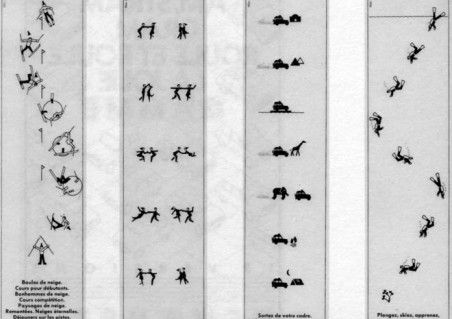 Boules de neige.
Cours pour débutants.
Bonhommes de neige.
Cours compétition.
Paysages de neige.
Remontées. Neiges éternelles.
Déjeuners sur les pistes.
Sortez de votre cadre.
Plongez, skiez, apprenez,